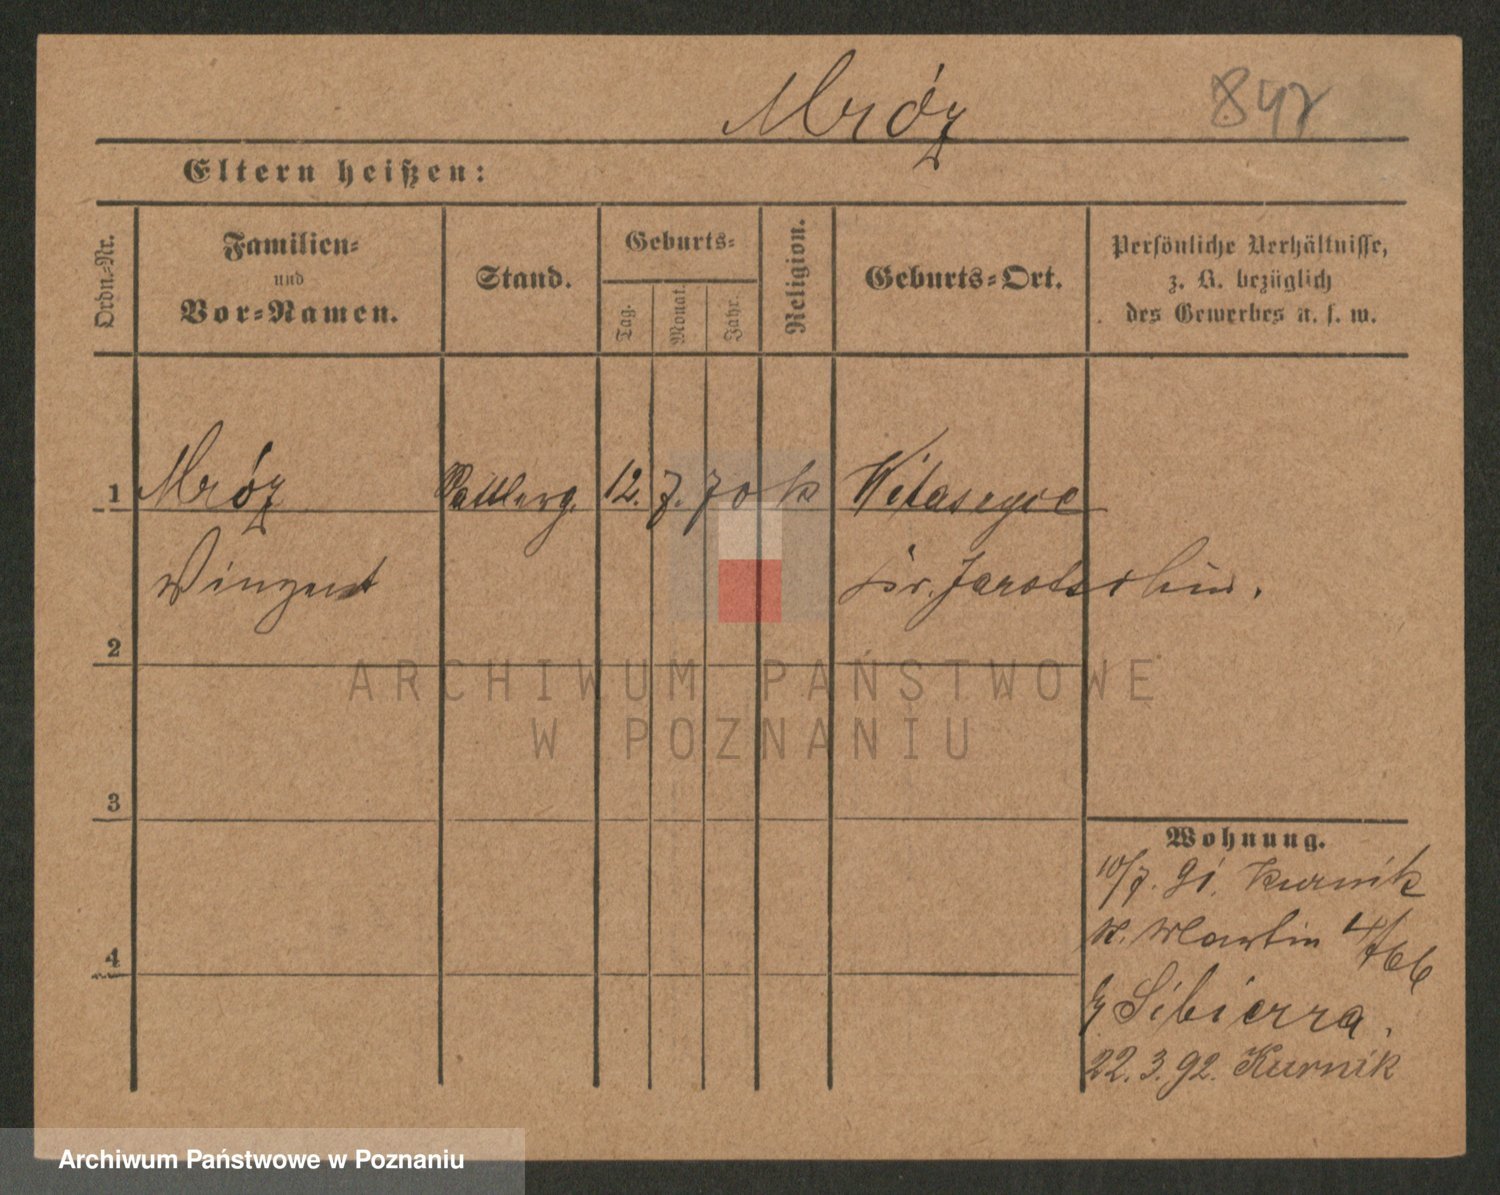 Mróz 842
Eltern heißen:
Ordn.-Nr.
Familien-
und
Vor-Namen.
Stand.
Geburts-
Tag.
Monat.
Jahr.
Religion.
Geburts-Ort.
Persönliche Verhältnisse,
z. B. bezüglich
des Gewerbes u. s. w.
1 Mróz Sattlerg. 12. 7. 70 k Witaszyce
Vinzent Kr. Jarotschin.
2
3
4
Wohnung.
10/7. 91. Kurnik
St. Martin 4/766
by Sibierra.
22. 3. 92. Kurnik
ARCHIWUM PAŃSTWOWE
W POZNANIU
Archiwum Państwowe w Poznaniu